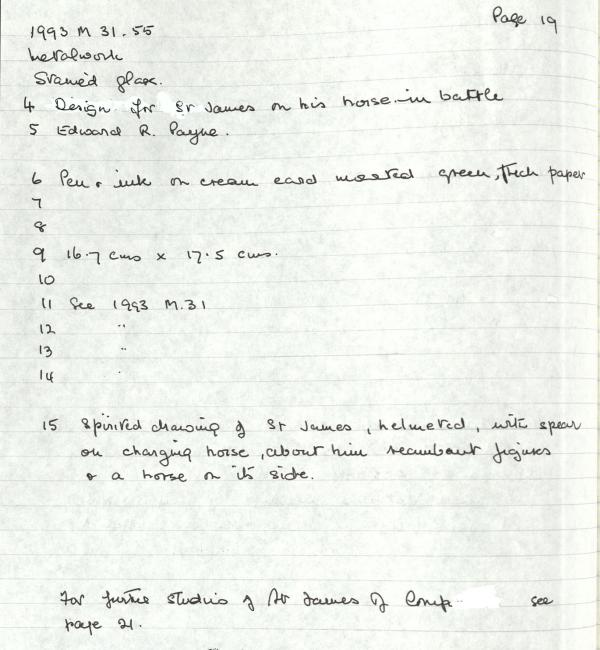 Page 19
1993 M 31.55
Metalwork
Stained glass.
4 Design for St James on his horse in battle
5 Edward R. Payne.
6 Pen & ink on cream card mounted green, thick paper
7
8
9 16.7 cms x 17.5 cms.
10
11 See 1993 M.31
12 "
13 "
14 "
15 Spirited drawing of St James, helmeted, with spear
on charging horse, about him recumbent figures
& a horse on its side.
For further studies of St James of Comp see
page 21.